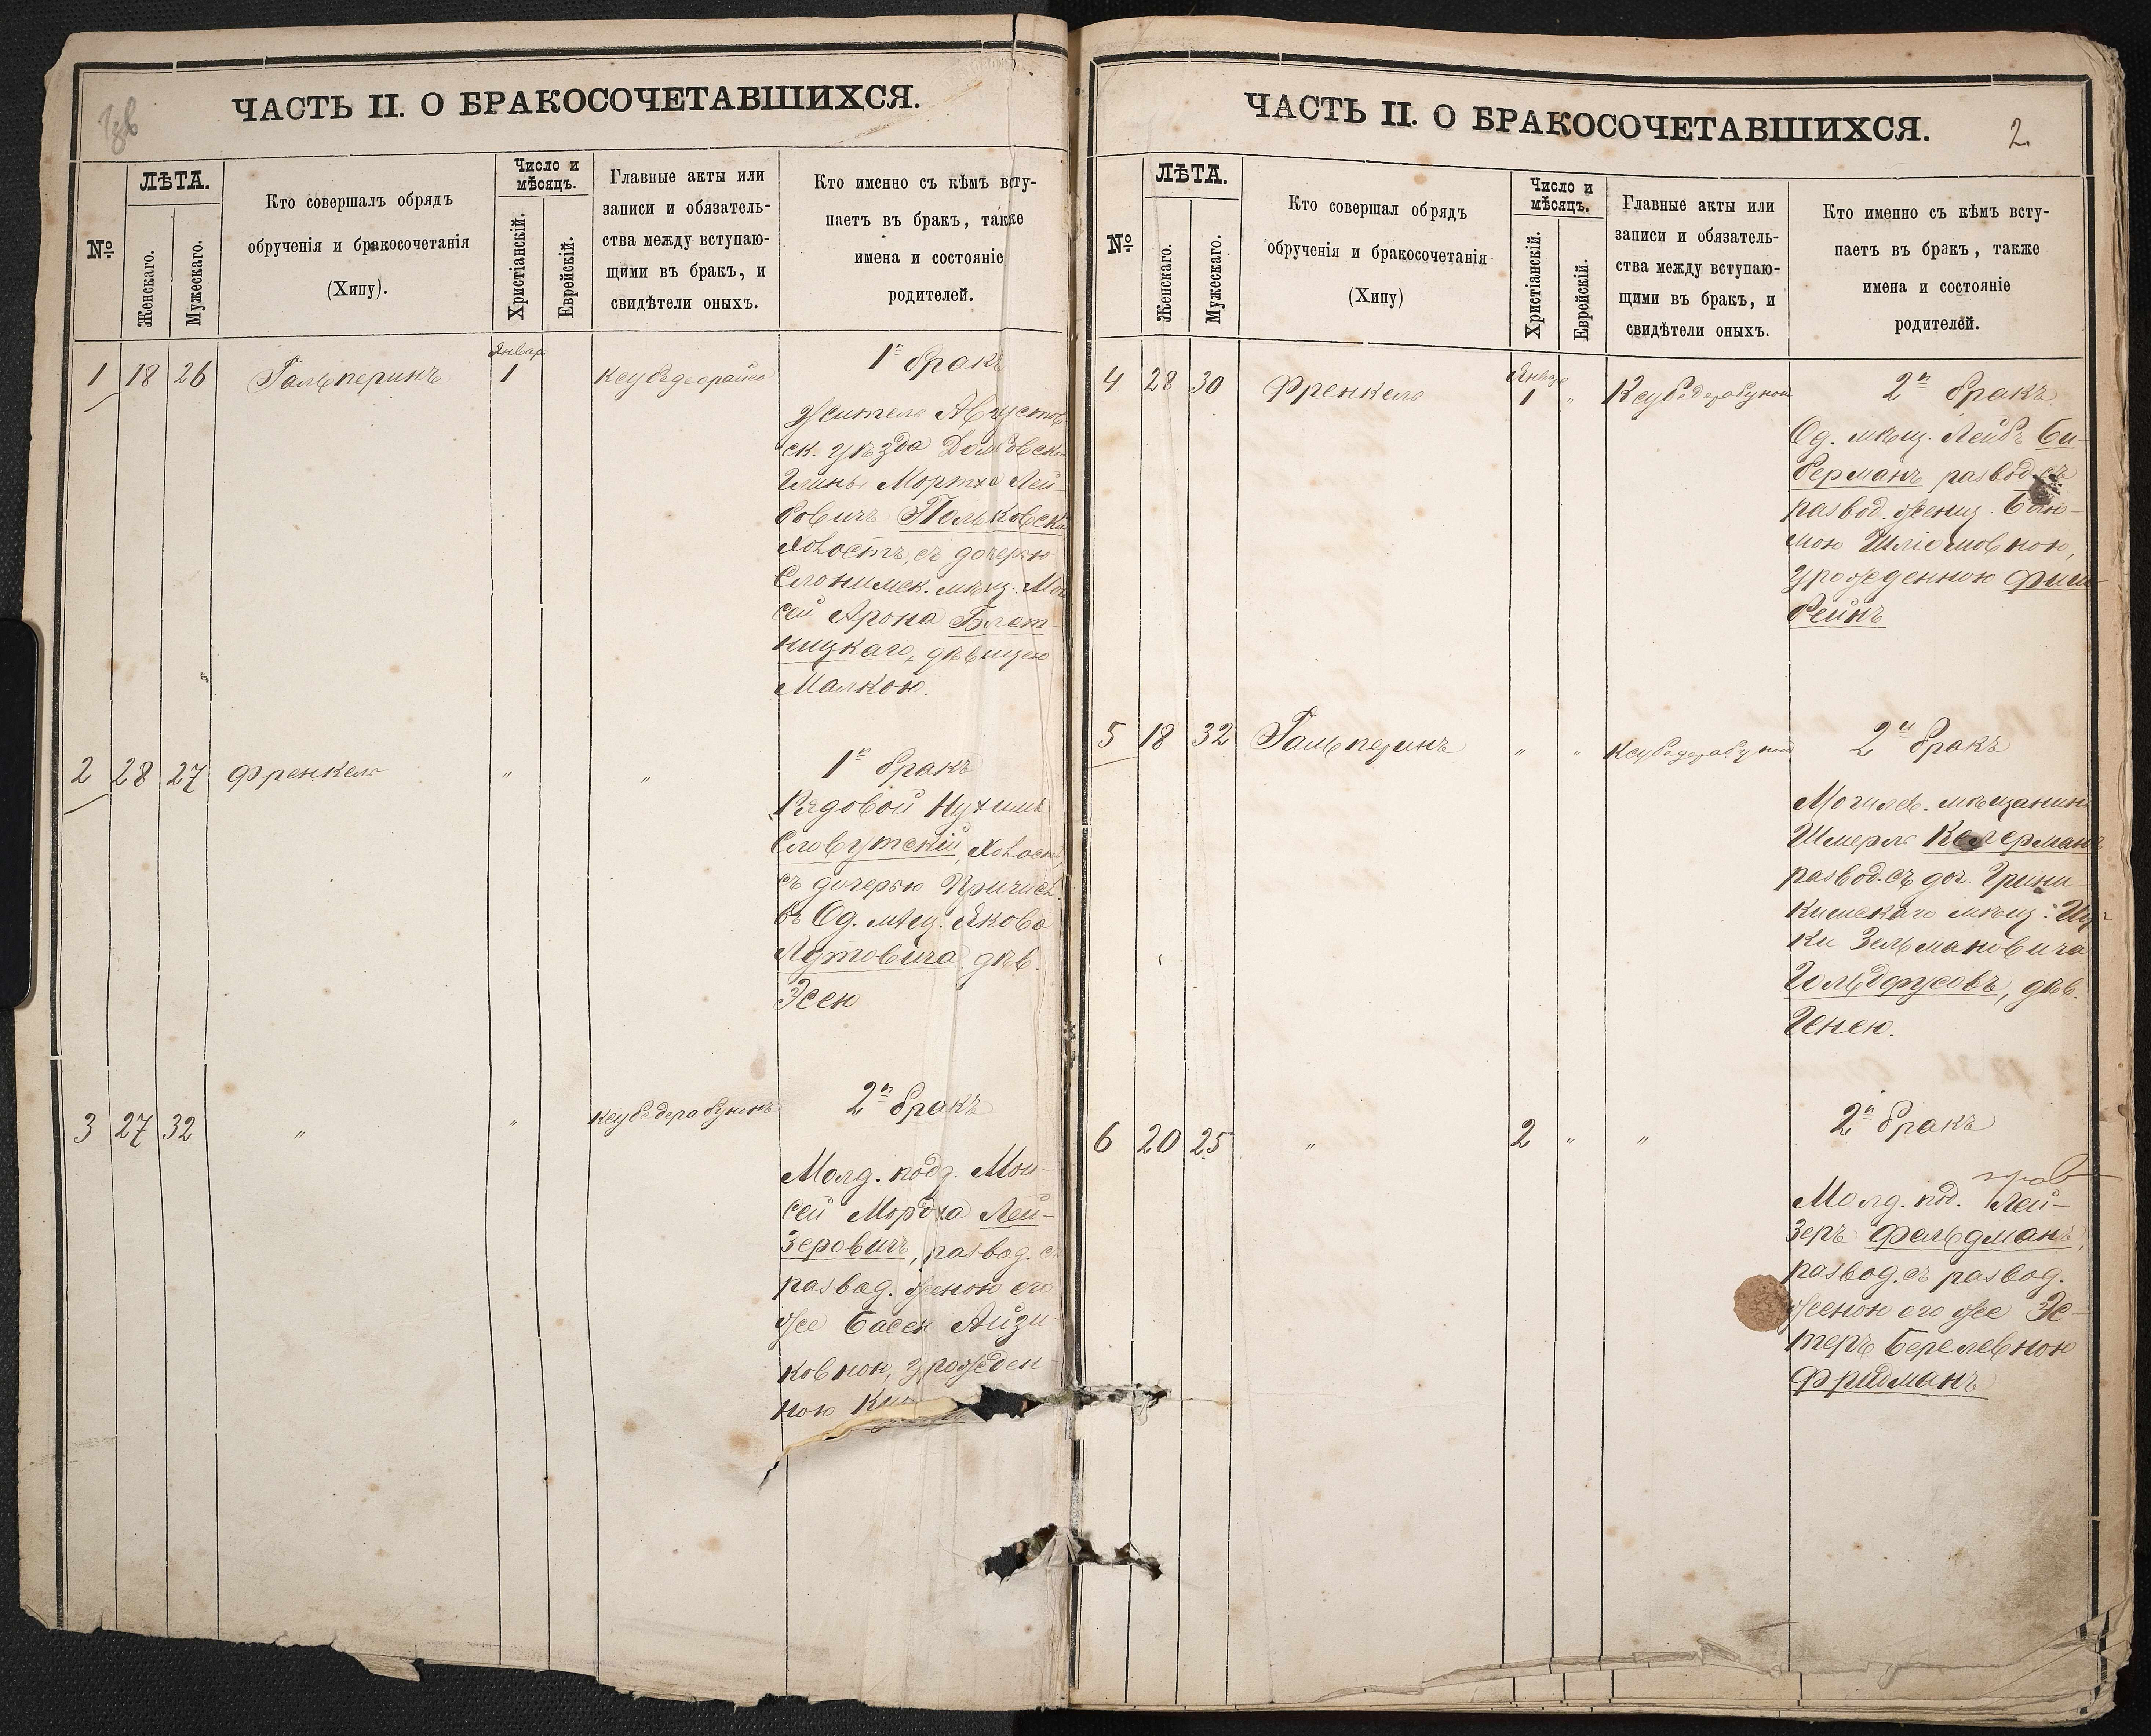 ЧАСТЬ II. О БРАКОСОЧЕТАВШИХСЯ.
№
ЛѢТА.
Женскаго.
Мужескаго.
Кто совершалъ обрядъ
обрученія и бракосочетанія
(Хипу).
Число и
мѣсяцъ.
Христіанскій.
Еврейскій.
Главные акты или
записи и обязатель-
ства между вступаю-
щими въ бракъ, и
свидѣтели оныхъ.
Кто именно съ кѣмъ всту-
паетъ въ бракъ, также
имена и состояніе
родителей.
1 18 26 Гальперинъ Январ. 1
1й бракъ
Житель Августов
ск. уѣзда
Гмины Мортха Лей-
бовичъ Польковскій
холостъ, съ дочерью
Слонимск. мѣщ. Мой
сей Арона Блет
ницкаго, дѣвицею
Малкою.
2 28 27 Френкель " "
1й бракъ
Рядовой Нухимъ
Словутскій, холостъ,
съ дочерью Причисл.
въ Од. мѣщ. Якова
Лутовича, дѣв.
Эсею
3 27 32 " " Ксубедерабунонъ
2й бракъ
Молд. подд. Мои-
сей Мордха Лей-
зеровичъ, развод. съ
развод. женою его
же Басей Айзи
ковною, урожден
ною
ЧАСТЬ II. О БРАКОСОЧЕТАВШИХСЯ.
2
№
ЛѢТА.
Женскаго.
Мужескаго.
Кто совершал обрядъ
обрученія и бракосочетанія
(Хипу)
Число и
мѣсяцъ.
Христіанскій.
Еврейскій.
Главные акты или
записи и обязатель-
ства между вступаю-
щими въ бракъ, и
свидѣтели оныхъ.
Кто именно съ кѣмъ всту-
паетъ въ бракъ, также
имена и состояніе
родителей.
4 28 30 Френкель Январ 1 " Ксубедерабунон
2й бракъ
Од. мѣщ. Лейбъ Би-
берманъ развод. съ
развод. женщ.
мою Шліомовною,
урожденною Фиш-
бейнъ
5 18 32 Гальперинъ " " Ксубедерабунон
2й бракъ
Могилев. мѣщанинъ
Шмерль Келерманъ
развод. съ доч. Грини-
кишскаго мѣщ. Иц-
ки Зельмановича
Гольдфусовъ, дѣв.
Генею.
6 20 25 " 2 " "
2й бракъ
Молд. под. Лей-
зеръ Фельдманъ,
развод. съ развод.
женою его же Эс-
теръ Берелевною
Фридманъ